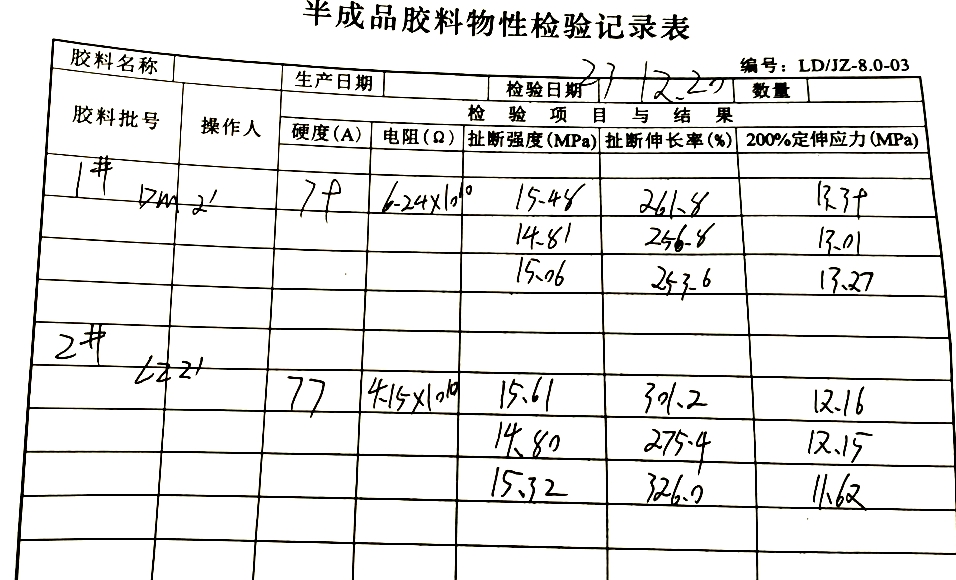 半成品胶料物性检验记录表
编号：LD/JZ-8.0-03
胶料名称 生产日期 检验日期 23 12.20 数量
胶料批号 操作人 检验项目与结果
硬度(A) 电阻(Ω) 扯断强度(MPa) 扯断伸长率(%) 200%定伸应力(MPa)
1# 6.24×10¹⁰ 15.48 261.8 13.39
14.81 256.8 13.01
15.06 253.6 13.27
2#
77 4.15×10¹⁰ 15.61 301.2 12.16
14.80 275.4 12.15
15.32 326.0 11.62